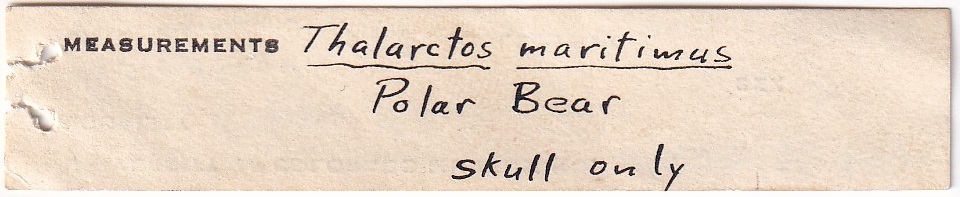 MEASUREMENTS Thalarctos maritimus
Polar Bear
skull only